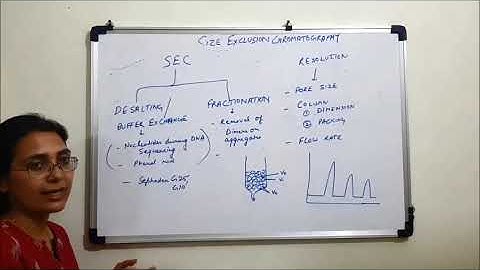 SIZE EXCLUSION CHROMATOGRAPHY
SEC
DESALTING
BUFFER EXCHANGE
- Nucleotides during DNA
Sequencing
- Phenol red
- Sephadex G25,
G10
FRACTIONATION
- Removal of
Dimers or
aggregates
-
Vo
Vi
Vg
RESOLUTION
- PORE SIZE
- COLUMN
① DIMENSION
② PACKING
- FLOW RATE